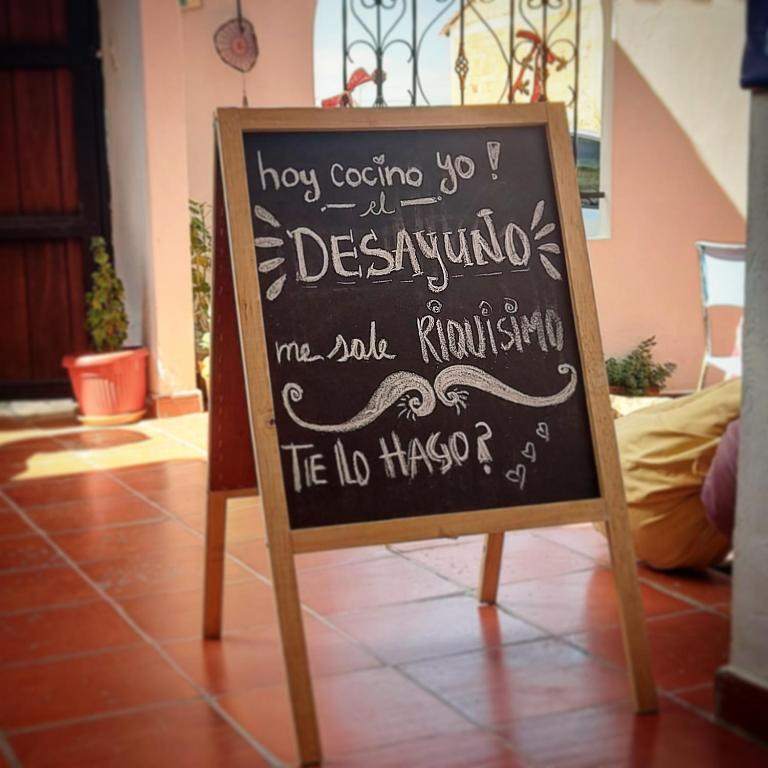 hoy cocino yo!
el
DESAYUÑO
me sale RIQUISIMO
TE lo HAGO?